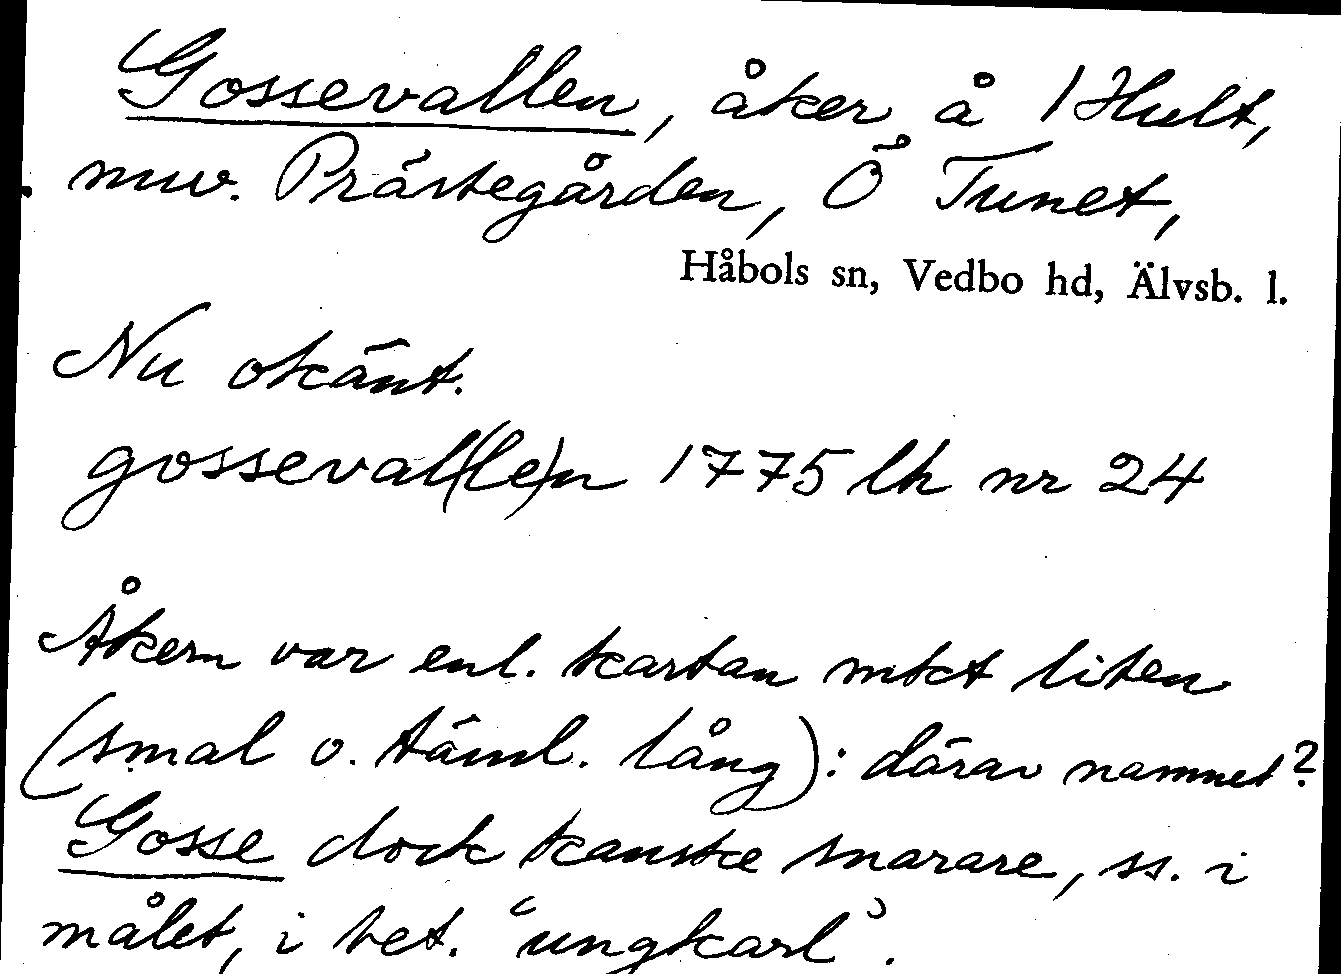 Gossevallen, åker å 1 Hult,
nuv. Prästegården, Ö Tunet,
Håbols sn, Vedbo hd, Älvsb. l.
Nu okänt.
gosseval(le)n 1775 lh nr 24
Åkern var enl. kartan mkt liten
(smal o. täml. lång): därav namnet?
Gosse dock kanske snarare, ss. i
målet, i bet. ‘ungkarl’.